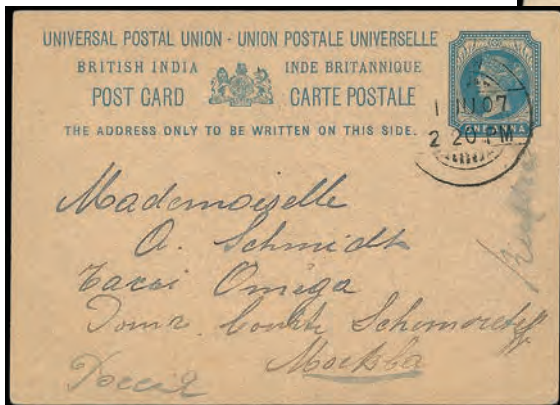 UNIVERSAL POSTAL UNION - UNION POSTALE UNIVERSELLE
BRITISH INDIA INDE BRITANNIQUE
POST CARD CARTE POSTALE
THE ADDRESS ONLY TO BE WRITTEN ON THIS SIDE.
ONE ANNA
1 JU 07
2 20 PM
Mademoiselle
A. Schmidt
Omega
Comte
Москва